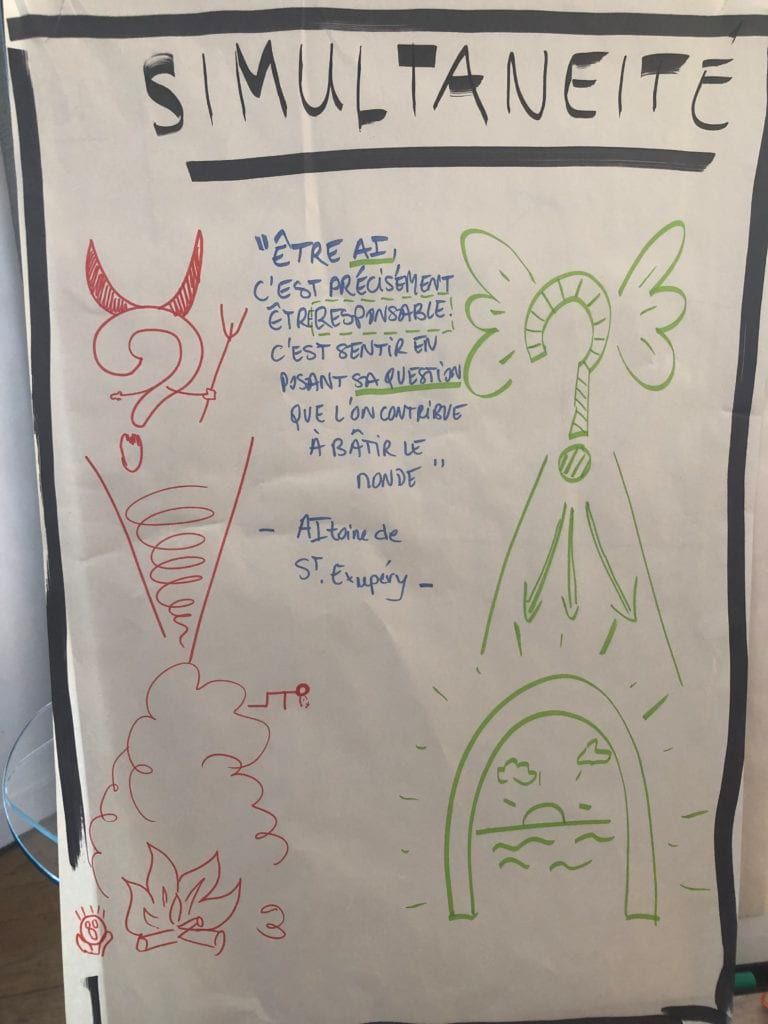 SIMULTANEITÉ
"ÊTRE AI,
C'EST PRÉCISÉMENT
ÊTRE RESPONSABLE!
C'EST SENTIR EN
POSANT SA QUESTION
QUE L'ON CONTRIBUE
À BÂTIR LE
MONDE"
- AItoine de
ST. Exupéry -